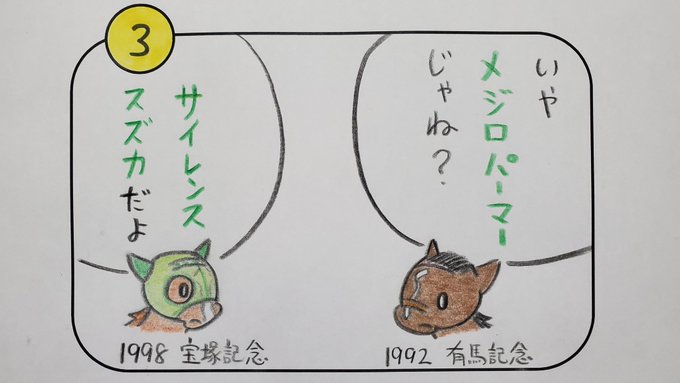 3
いや
メジロパーマー
じゃね?
サイレンス
スズカだよ
1998 宝塚記念
1992 有馬記念